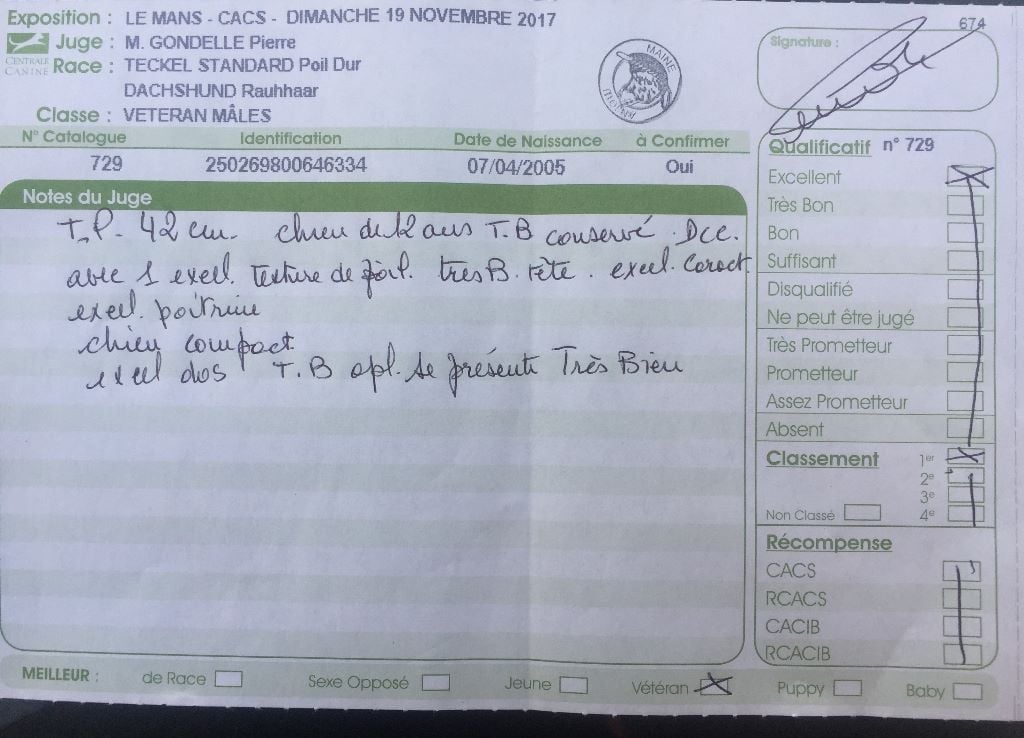 Exposition : LE MANS - CACS - DIMANCHE 19 NOVEMBRE 2017
674
CENTRALE CANINE
Juge : M. GONDELLE Pierre
Race : TECKEL STANDARD Poil Dur
DACHSHUND Rauhhaar
Classe : VETERAN MÂLES
MAINE
Signature :
N° Catalogue Identification Date de Naissance à Confirmer
729 250269800646334 07/04/2005 Oui
Notes du Juge
T.P. 42 cm. chien de 12 ans T.B conservé. Dcc.
avec 1 excel. Texture de poil. tres B. tête. excel. Caract.
excel. poitrine
chien compact
excel dos T.B apl. se présente Très Bien
Qualificatif n° 729
Excellent
Très Bon
Bon
Suffisant
Disqualifié
Ne peut être jugé
Très Prometteur
Prometteur
Assez Prometteur
Absent
Classement 1er
2e
3e
Non Classé 4e
Récompense
CACS
RCACS
CACIB
RCACIB
MEILLEUR : de Race Sexe Opposé Jeune Vétéran Puppy Baby